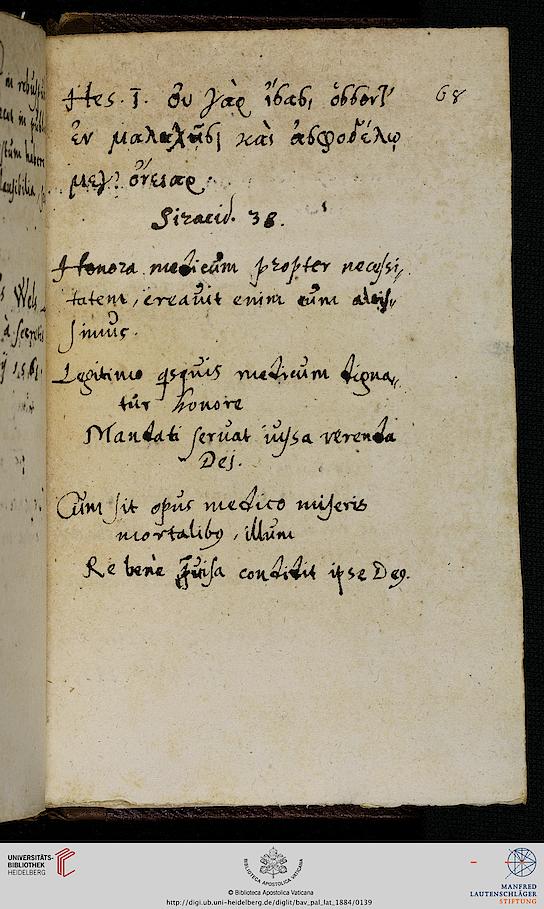 68
Hes. I. Οὐ γὰρ ἴσασ, ὅσσον
ἐν μαλάχῃ καὶ ἀσφοδέλῳ
μέγ ὄνειαρ.
Siracid. 38.
Honora medicum propter necessi,,
tatem, creavit enim eum altis,,
simus.
Legitimo qsquis medicum digna,,
tur honore
Mandati servat iussa verenda
Dei.
Cum sit opus medico miseris
mortalibꝰ, illum
Re bene condidit ipse Deꝰ.
UNIVERSITÄTS-
BIBLIOTHEK
HEIDELBERG
BIBLIOTECA APOSTOLICA VATICANA
© Biblioteca Apostolica Vaticana
http://digi.ub.uni-heidelberg.de/diglit/bav_pal_lat_1884/0139
MANFRED
LAUTENSCHLÄGER
STIFTUNG